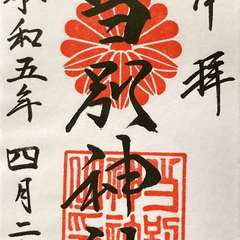 奉拝
当別神社
令和五年 四月二